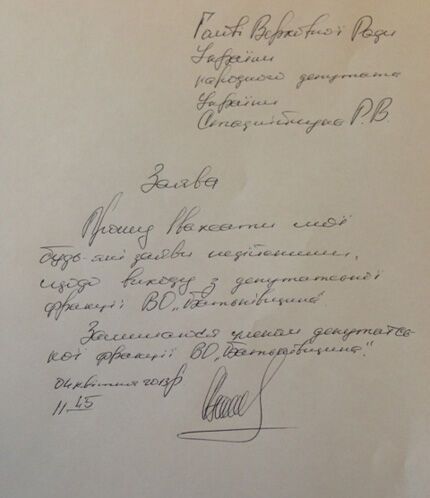 Голові Верховної Ради
України
народного депутата
України
Стаднійчука Р.В.
Заява
Прошу вважати мої
будь-які заяви недійсними,
щодо виходу з депутатської
фракції ВО „Батьківщина"
Залишаюся членом депутатсь-
кої фракції ВО „Батьківщина".
04 квітня 2013р
11 45